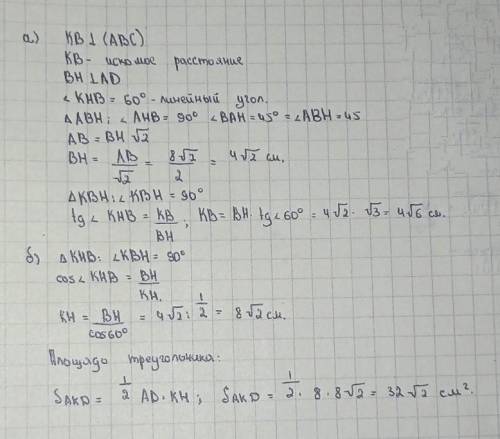 а) KB ⊥ (ABC)
KB - искомое расстояние
BH ⊥ AD
∠ KHB = 60° - линейный угол.
△ ABH; ∠ AHB = 90° ∠ BAH = 45° = ∠ ABH = 45
AB = BH √2
BH = AB/√2 = 8√2/2 = 4√2 см.
△ KBH: ∠ KBH = 90°
tg ∠ KHB = KB/BH; KB = BH · tg ∠ 60° = 4√2 · √3 = 4√6 см.
б) △ KHB: ∠ KBH = 90°
cos ∠ KHB = BH/KH.
KH = BH/cos60° = 4√2 : 1/2 = 8√2 см.
Площадь треугольника:
S_AKD = 1/2 AD · KH; S_AKD = 1/2 · 8 · 8√2 = 32√2 см².